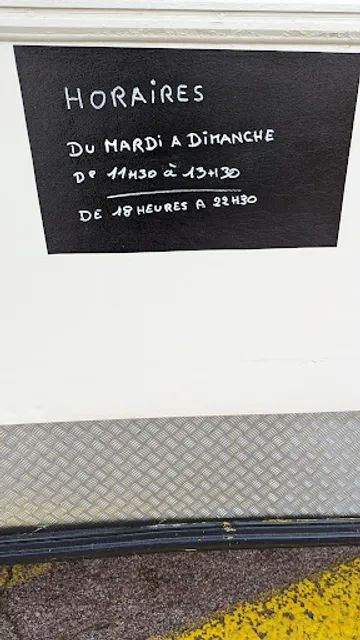 HORAIRES
DU MARDI A DIMANCHE
De 11H30 à 13H30
DE 18 HEURES A 22H30